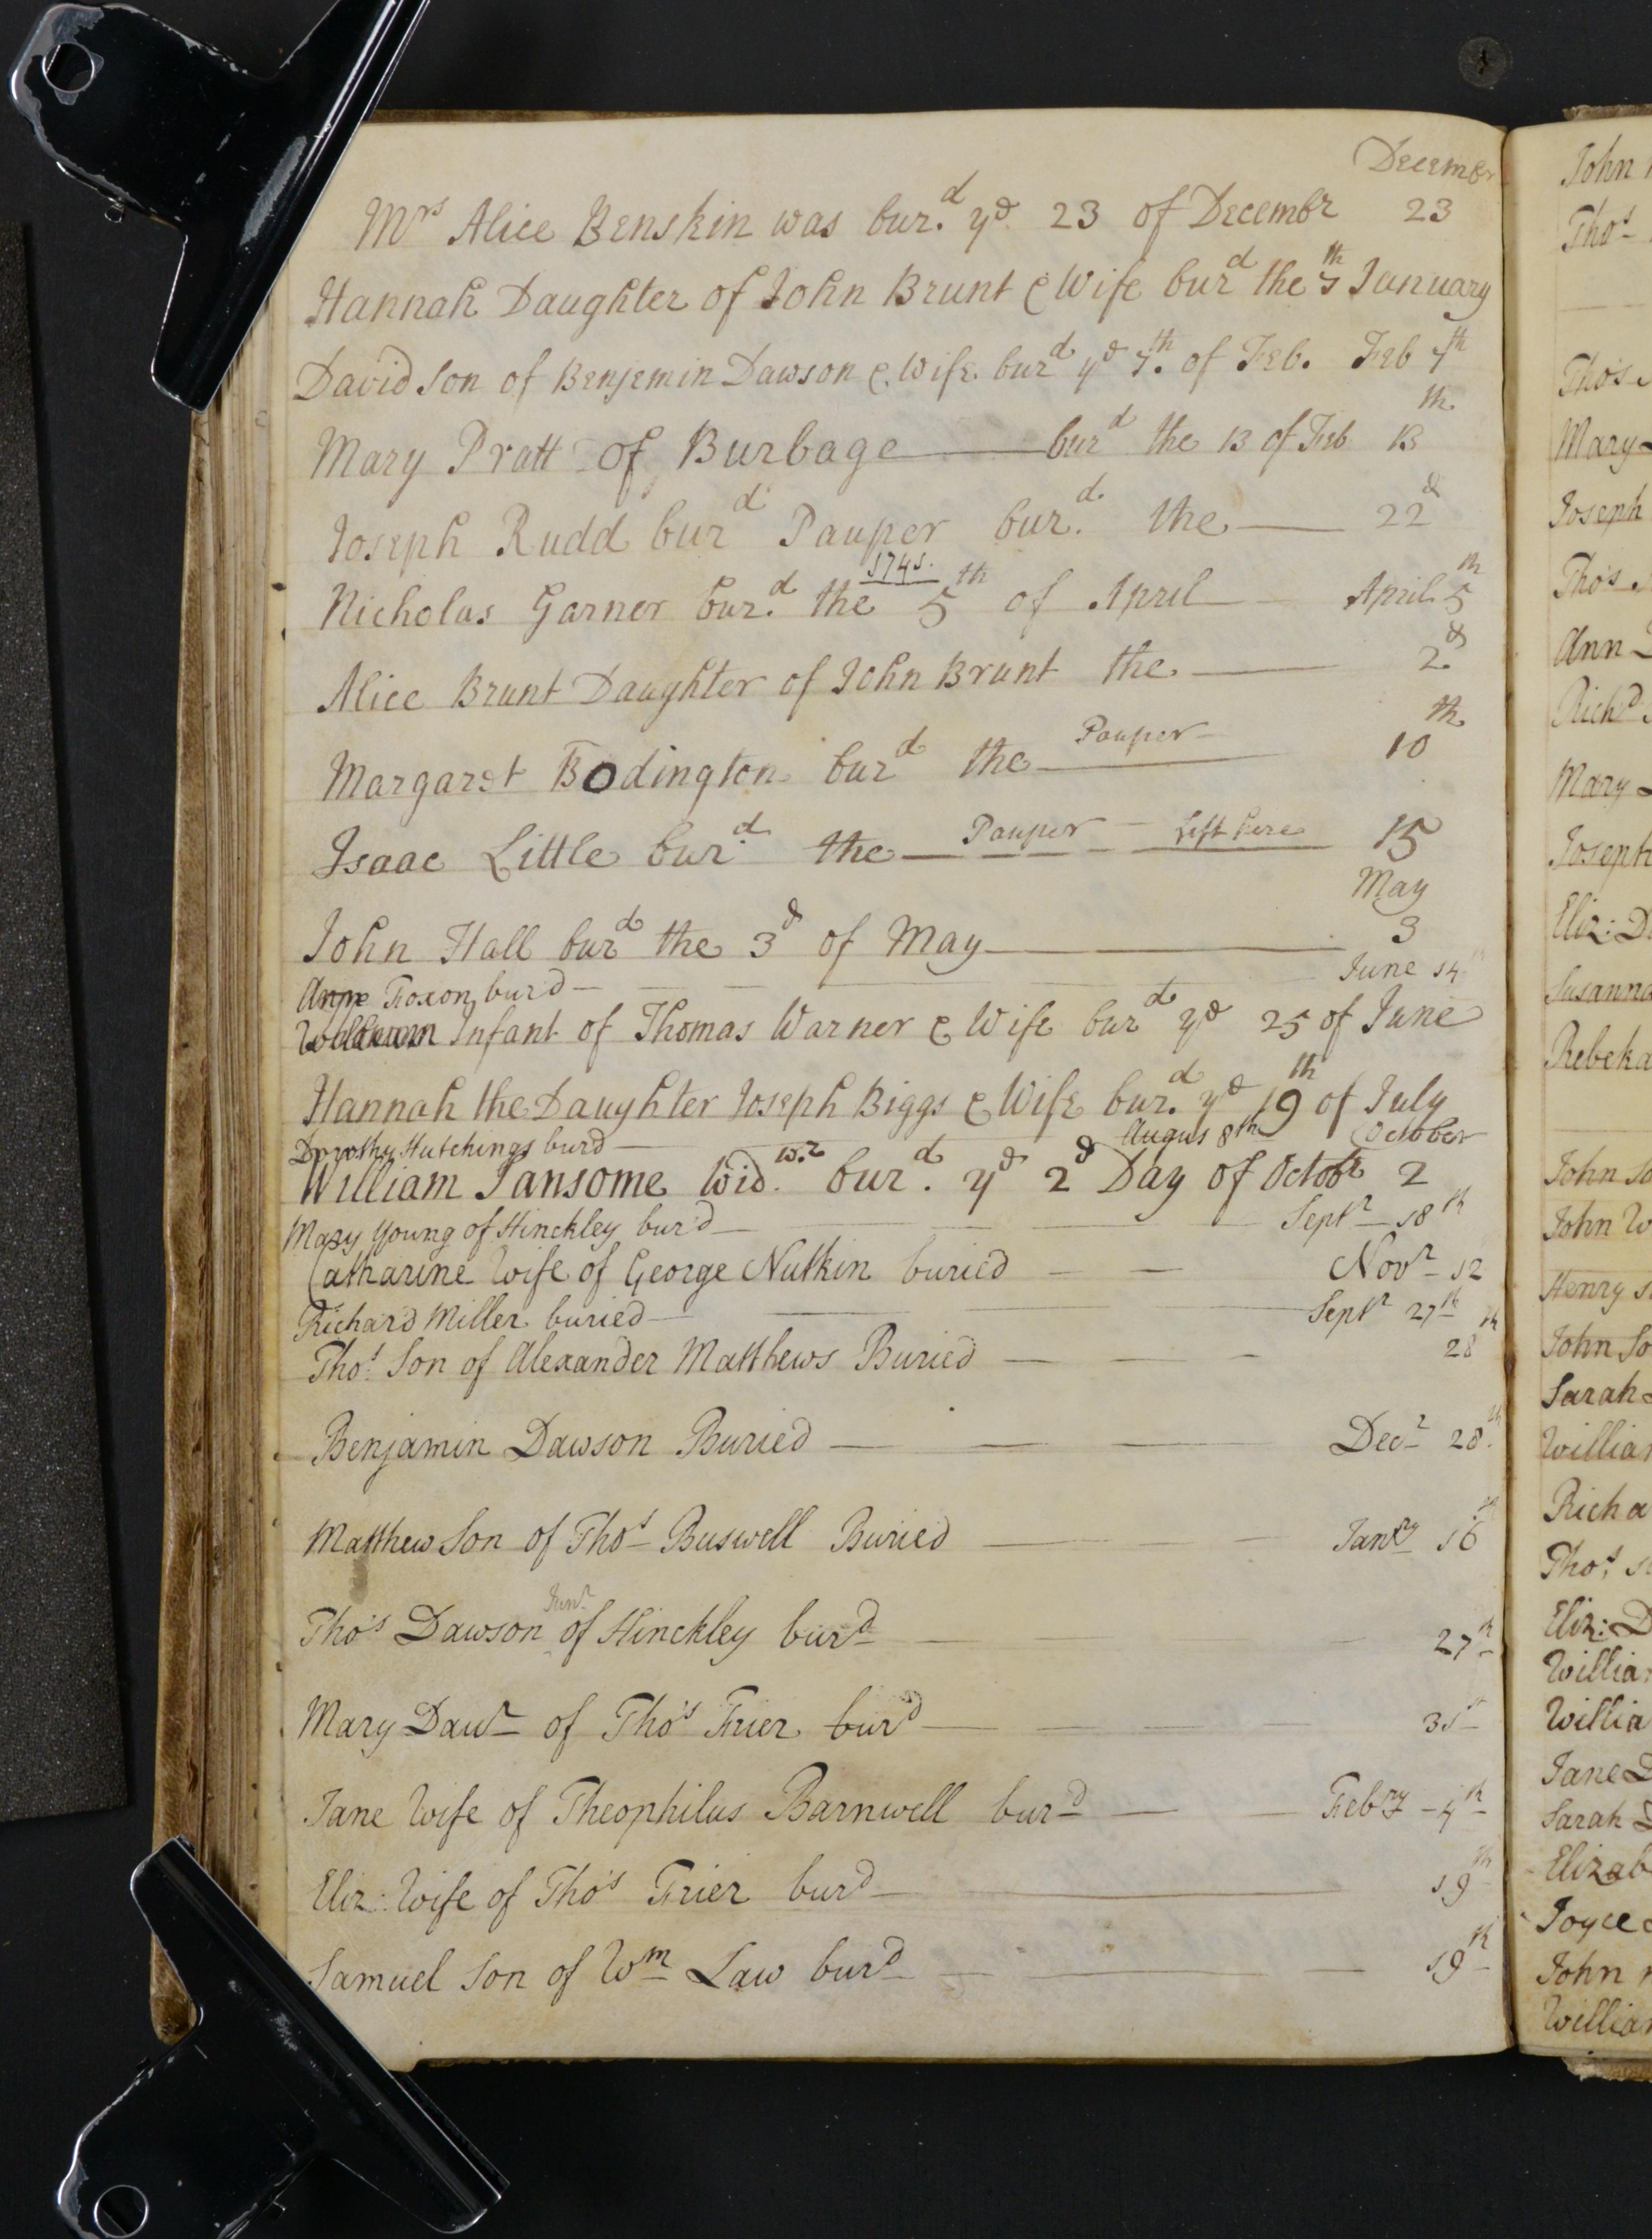 Decembr
Mrs Alice Benskin was bur.d ye 23 of Decembr 23
Hannah Daughter of John Brunt & Wife burd the 5th January
David Son of Benjemin Dawson & Wife burd ye 7th of Feb. Feb 7th
Mary Pratt of Burbage burd the 13 of Feb 13th
Joseph Rudd burd Pauper bur.d the 22d
1745.
Nicholas Garner bur.d the 5th of April April 5th
Alice Brunt Daughter of John Brunt the 2d
Margaret Bodington burd the Pauper 10th
Isaac Little burd the Pauper left here 15
May
John Hall burd the 3d of May 3
Anne Foxon burd June 14th
William Infant of Thomas Warner & Wife burd ye 25 of June
Hannah the Daughter Joseph Biggs & Wife bur.d ye 19th of July
Dorothy Hutchings burd Augus 8th October
William Jansome Wid.wr bur.d ye 2d Day of Octobr 2
Mary Young of Hinckley bur'd Septr 18th
Catharine Wife of George Nutkin buried Novr 12
Richard Miller buried Septr 27th
Thos Son of Alexander Matthews Buried 28th
Benjamin Dawson Buried Decr 28th
Matthew Son of Thos Buswell Buried Janry 16th
Tho's Dawson Junr of Hinckley burd 27th
Mary Daur of Tho's Frier burd 31st
Jane Wife of Theophilus Barnwell burd Febry 4th
Eliz: Wife of Tho's Frier burd 19th
Samuel Son of Wm Law burd 19th
John
Thos
Thos
Mary
Joseph
Tho's
Ann
Richd
Mary
Joseph
Eliz: D
Susanna
Rebeka
John So
John W
Henry
John So
Sarah
William
Richa
Thos
Eliz: D
William
Willia
Jane D
Sarah
Elizab
Joyce
John
William